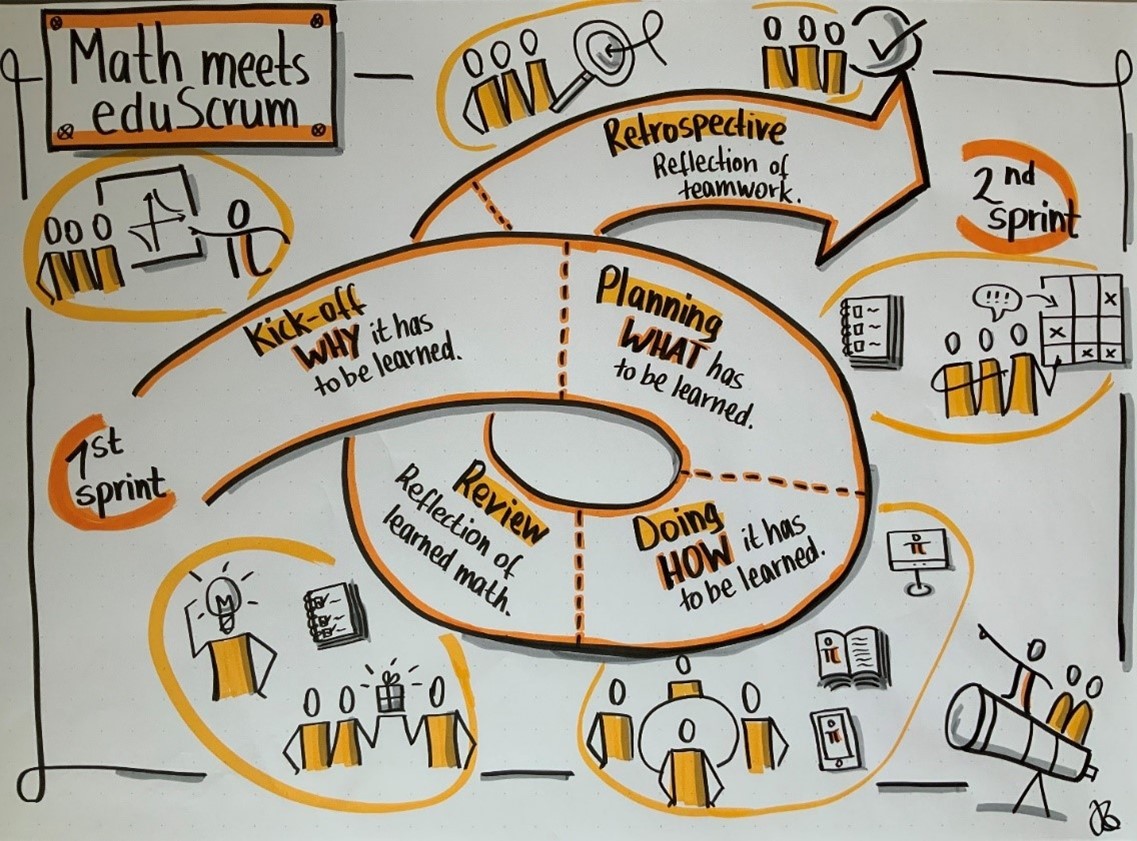 Math meets
eduScrum
Retrospective
Reflection of
teamwork.
2nd
sprint
Kick-off
WHY it has
to be learned.
Planning
WHAT has
to be learned.
!!!
x
x
x x
1st
sprint
Review
Reflection of
learned math.
Doing
HOW it has
to be learned.
M
π
π
π